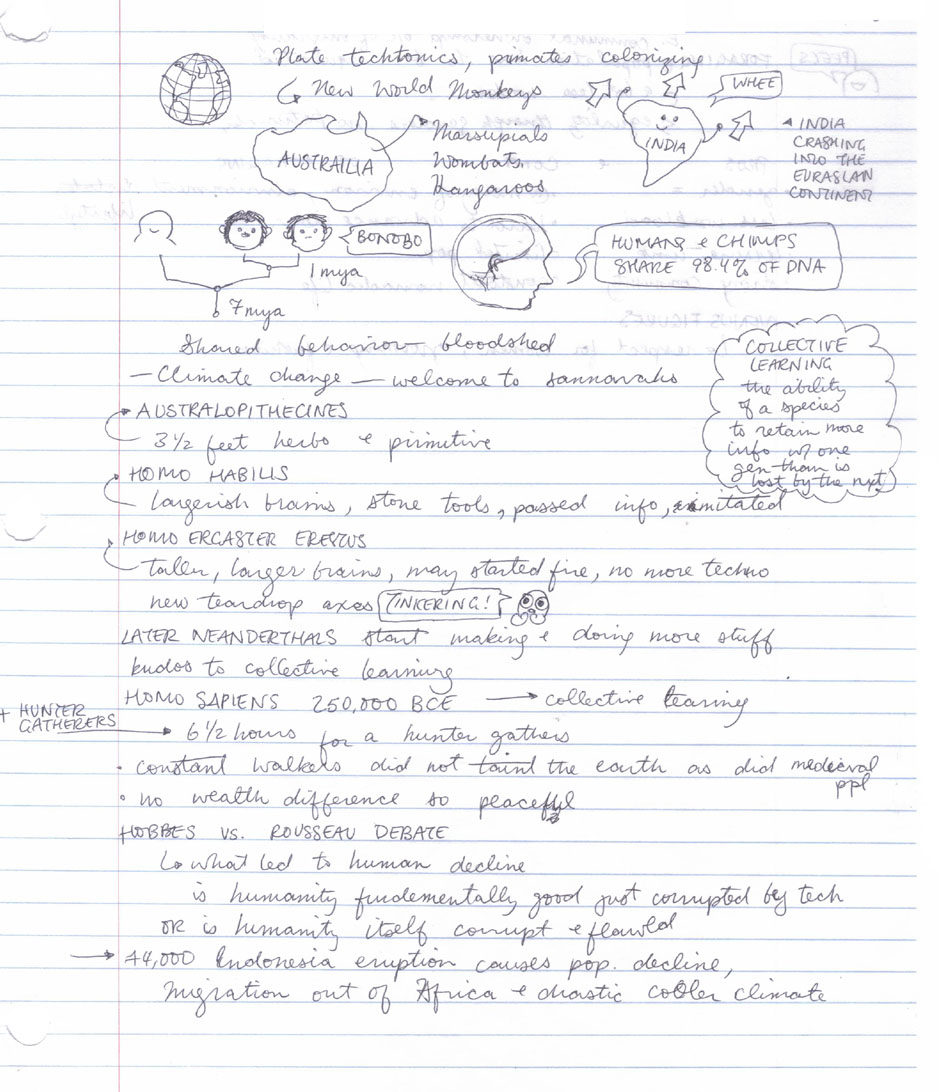 Plate techtonics, primates colonizing
New World Monkeys
WHEE
AUSTRAILIA
Marsupials
Wombats
Kangaroos
INDIA
INDIA
CRASHING
INTO THE
EURASIAN
CONTINENT
BONOBO
1 mya
7 mya
HUMANS & CHIMPS
SHARE 98.4% OF DNA
Shared behavior bloodshed
— Climate change — welcome to sannavahs
COLLECTIVE
LEARNING
the ability
of a species
to retain more
info w/ one
gen than is
lost by the nxt
AUSTRALOPITHECINES
3 1/2 feet herbo & primitive
HOMO HABILIS
largerish brains, stone tools, passed info, imitated
HOMO ERGASTER ERECTUS
taller, larger brains, may started fire, no more techno
new teardrop axes TINKERING!
LATER NEANDERTHALS start making & doing more stuff
kudos to collective learning
HOMO SAPIENS 250,000 BCE → collective learing
+ HUNTER
GATHERERS
6 1/2 hours for a hunter gathers
• constant walkers did not taint the earth as did medieval
ppl
• no wealth difference so peaceful
HOBBES VS. ROUSSEAU DEBATE
what led to human decline
is humanity fundementally good just corrupted by tech
OR is humanity itself corrupt & flawld
→ 44,000 Indonesia eruption causes pop. decline,
migration out of Africa & drastic cooler climate